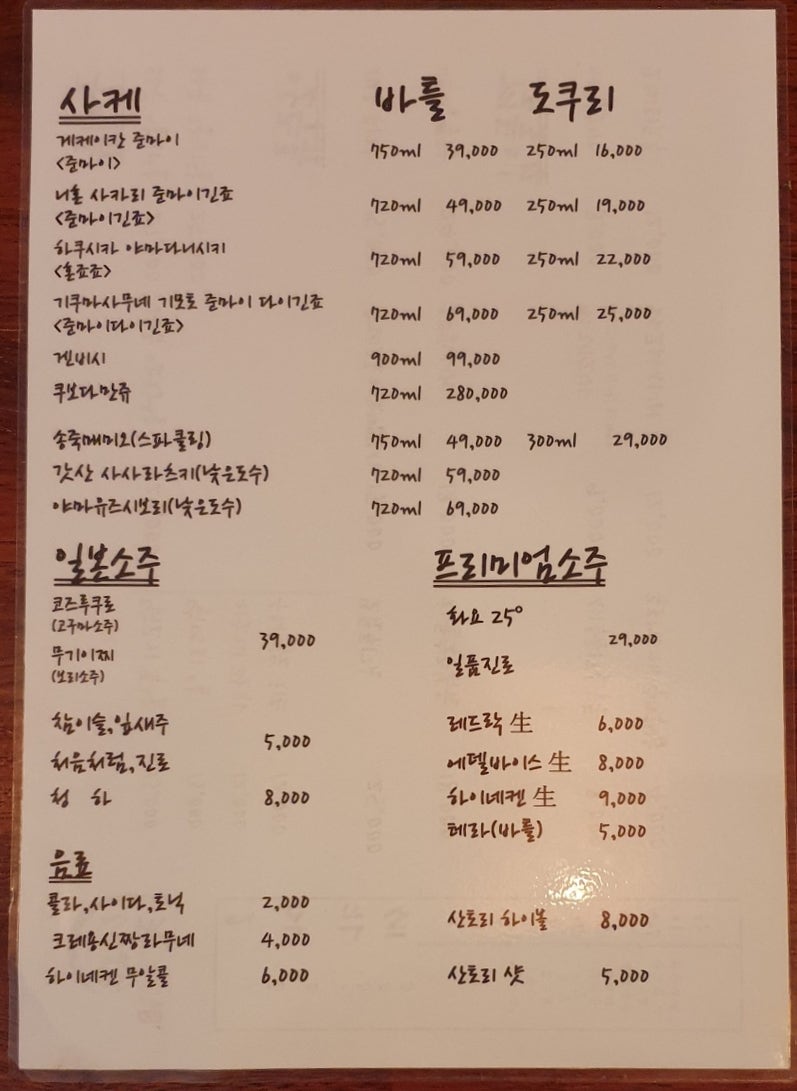 사케 바틀 도쿠리
게케이칸 준마이
<준마이> 750ml 39,000 250ml 16,000
니혼 사카리 준마이긴죠
<준마이긴죠> 720ml 49,000 250ml 19,000
하쿠시카 야마다니시키
<혼죠죠> 720ml 59,000 250ml 22,000
기쿠마사무네 기모토 준마이 다이긴죠
<준마이다이긴죠> 720ml 69,000 250ml 25,000
겐비시 900ml 99,000
쿠보다만쥬 720ml 280,000
송죽매미오(스파클링) 750ml 49,000 300ml 29,000
갓산 사사라츠키(낮은도수) 720ml 59,000
야마유즈시보리(낮은도수) 720ml 69,000
일본소주
코즈루쿠로
(고구마소주)
39,000
무기이찌
(보리소주)
참이슬,잎새주
5,000
처음처럼,진로
청 하 8,000
음료
콜라,사이다,토닉 2,000
크레용신짱라무네 4,000
하이네켄 무알콜 6,000
프리미엄소주
화요 25°
29,000
일품진로
레드락 生 6,000
에델바이스 生 8,000
하이네켄 生 9,000
테라(바틀) 5,000
산토리 하이볼 8,000
산토리 샷 5,000